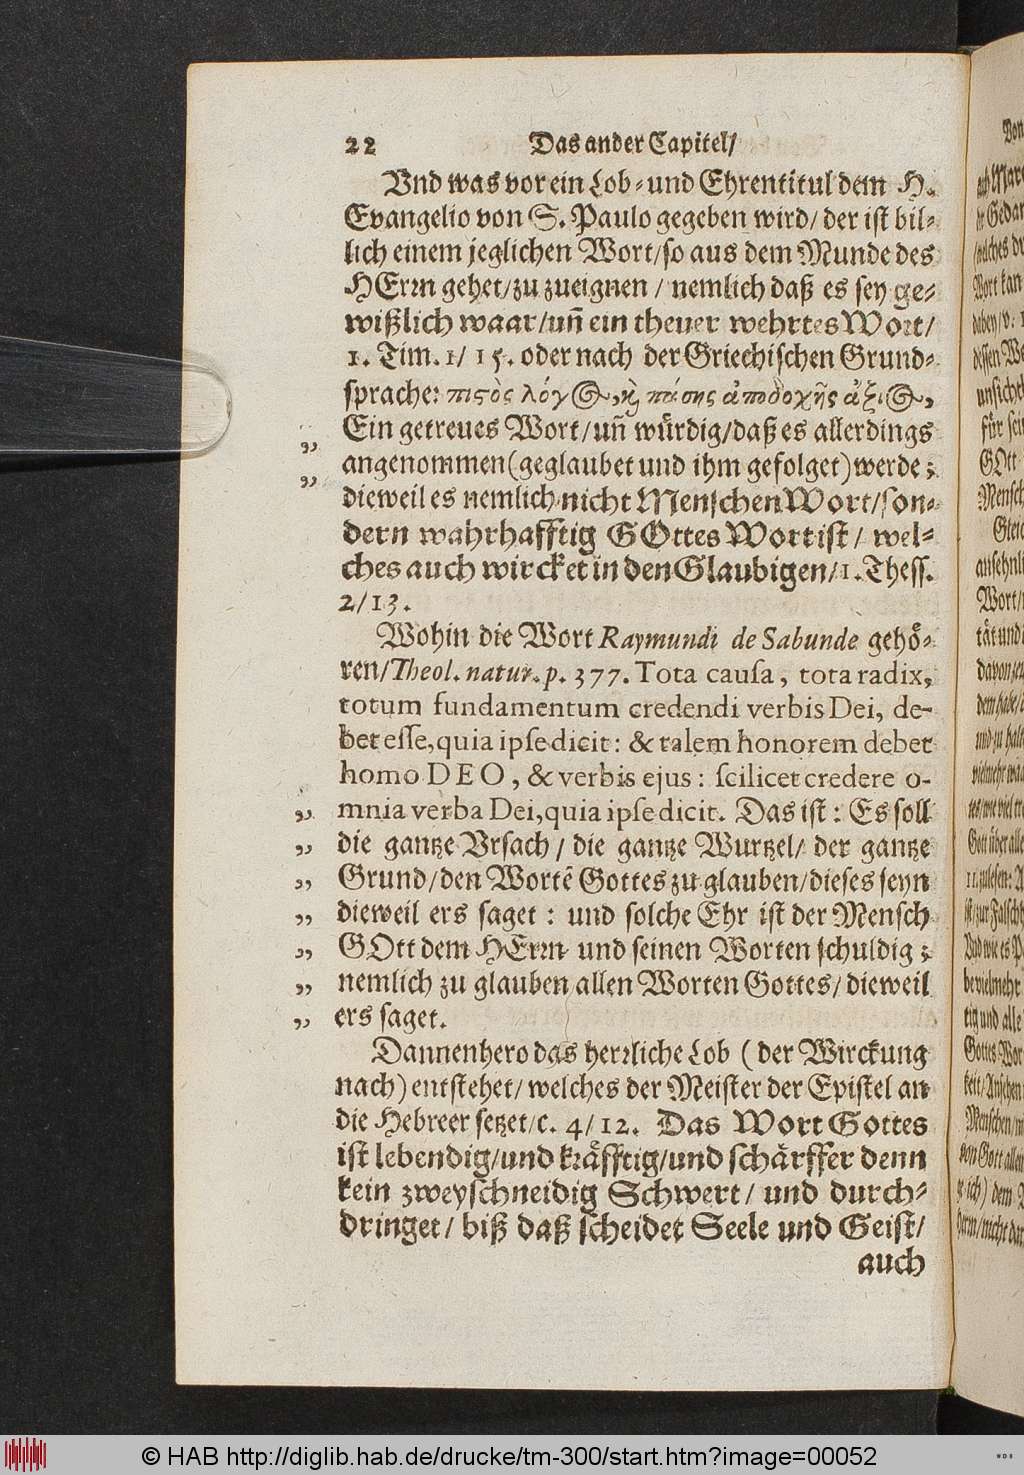 22 Das ander Capitel/
Vnd was vor ein Lob- und Ehrentitul dem H.
Evangelio von S. Paulo gegeben wird/ der ist bil-
lich einem jeglichen Wort/so aus dem Munde des
HErrn gehet/zu zueignen / nemlich daß es sey ge-
wißlich waar/uñ ein theuer wehrtes Wort/
1. Tim. 1/ 15. oder nach der Griechischen Grund-
sprache: πιςὸς λόγ , ϗ πάσης ἀποδοχῆς ἀξι ,
Ein getreues Wort/uñ würdig/daß es allerdings
„ angenommen(geglaubet und ihm gefolget)werde;
„ dieweil es nemlich nicht Menschen Wort/son-
dern wahrhafftig GOttes Wort ist/ wel-
ches auch wircket in den Glaubigen/1. Thess.
2/13.
Wohin die Wort Raymundi de Sabunde gehö-
ren/Theol. natur. p. 377. Tota causa, tota radix,
totum fundamentum credendi verbis Dei, de-
bet esse, quia ipse dicit: & talem honorem debet
homo DEO, & verbis ejus: scilicet credere o-
„ mnia verba Dei, quia ipse dicit. Das ist: Es soll
„ die gantze Vrsach/ die gantze Wurtzel/ der gantze
„ Grund/den Wortē Gottes zu glauben/dieses seyn
„ dieweil ers saget: und solche Ehr ist der Mensch
„ GOtt dem HErrn und seinen Worten schuldig;
„ nemlich zu glauben allen Worten Gottes/ dieweil
„ ers saget.
Dannenhero das herrliche Lob (der Wirckung
nach) entstehet/ welches der Meister der Epistel an
die Hebreer setzet/c. 4/12. Das Wort Gottes
ist lebendig/und kräfftig/und schärffer denn
kein zweyschneidig Schwert/ und durch-
dringet/ biß daß scheidet Seele und Geist/
auch
© HAB http://diglib.hab.de/drucke/tm-300/start.htm?image=00052